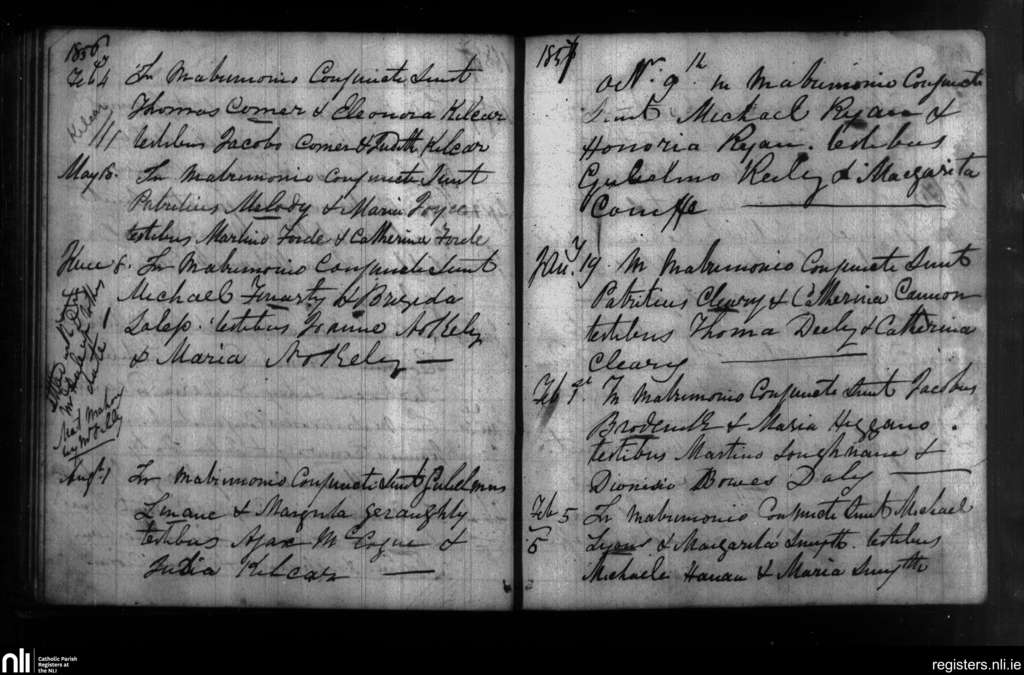 1856
Feb 4 In Matrimonio Conjuncti Sunt
Thomas Comer & Eleonora Kilcar
Kilcar
testibus Jacobo Comer & Judith Kilcar
May 18. In Matrimonio Conjuncti Sunt
Patritius Melody & Maria Joyce
testibus Martino Forde & Catherina Forde
8. In Matrimonio Conjuncti Sunt
Michael Finarty & Brigida
testibus Joanne
& Maria
date
Augt 1 In Matrimonio Conjuncti Sunt Gulielmus
Linane & Margrita Geraughty
testibus Ajax &
Julia Kilcar
1857
9th in Matrimonio Conjuncti
Sunt Michael Ryan &
Honoria Ryan. testibus
Gulielmo Keily & Margarita
Jany. 19 In Matrimonio Conjuncti Sunt
Patritius Cleary & Catherina Cannon
testibus Thoma Deely & Catherina
Cleary
Feb 1st In Matrimonio Conjuncti Sunt Jacobus
Broderick & Maria Higgans
testibus Martino Loughnane &
Dionisio Bowes Daly
Feb 5 In Matrimonio Conjuncti Sunt Michael
5 Lyons & Margarita Smyth. testibus
Michaele Hanan & Maria Smythe
nli
Catholic Parish
Registers at
the NLI
registers.nli.ie